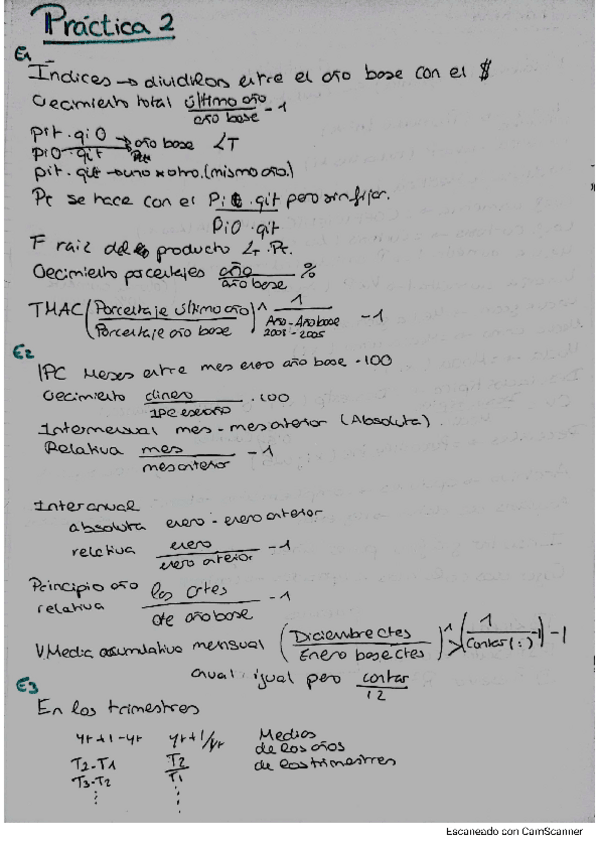 Práctica 2
E1
Índices → dividirlos entre el año base con el $
Crecimiento total último año / año base - 1
pit · qi0 / pi0 · qit → año base LT
pit · qit → uno x otro. (mismo año.)
Pt se hace con el Pit · qit / pi0 · qit pero sin fijar.
F raiz del producto LT · Pt.
Crecimiento porcentajes año / año base %
TMAC (Porcentaje último año / Porcentaje año base) ^ 1 / Año - Año base - 1
2008 - 2005
E2
IPC Meses entre mes enero año base · 100
Crecimiento dinero / IPC ese año · 100
Intermensual mes - mes anterior (Absoluta)
Relativa mes / mes anterior - 1
Interanual
absoluta enero - enero anterior
relativa enero / enero anterior - 1
Principio año
relativa los ctes / cte año base - 1
V. Media acumulativa mensual (Diciembre ctes / Enero base ctes) ^ (1 / Contar(:) - 1) - 1
anual igual pero contar / 12
E3
En los trimestres
yt+1 - yt yt+1/yt Medias
de los años
T2-T1 T2 / T1 de los trimestres
T3-T2